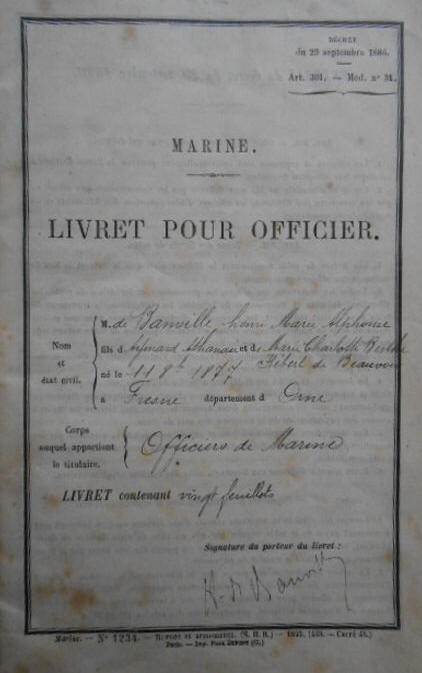 DÉCRET
du 29 septembre 1886.
Art. 301. — Mod. n° 31.
MARINE.
LIVRET POUR OFFICIER.
Nom
et
état civil.
M. de Banville, henri Marie Alphonse
fils d' Aymard Athanase et de Marie Charlotte
Hébert de Beauvoir
né le 11 8bre 1877
à Fresne département d Orne
Corps
auquel appartient
le titulaire.
Officiers de Marine
LIVRET contenant vingt feuillets
Signature du porteur du livret :
H. de Banville
Marine. — N° 1234. —
Paris. — Imp.